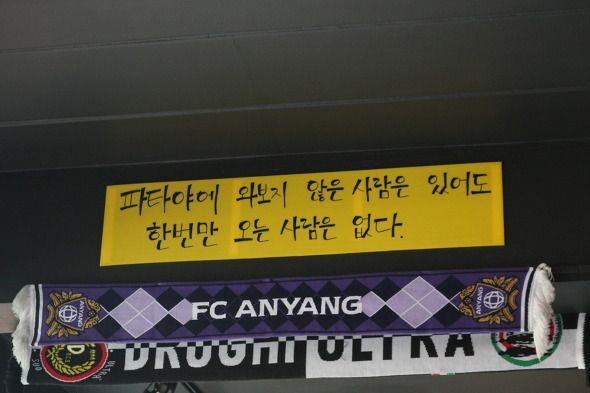 파타야에 와보지 않은 사람은 있어도
한번만 오는 사람은 없다.
ANYANG FC ANYANG ANYANG
DRUGHI ULTRA